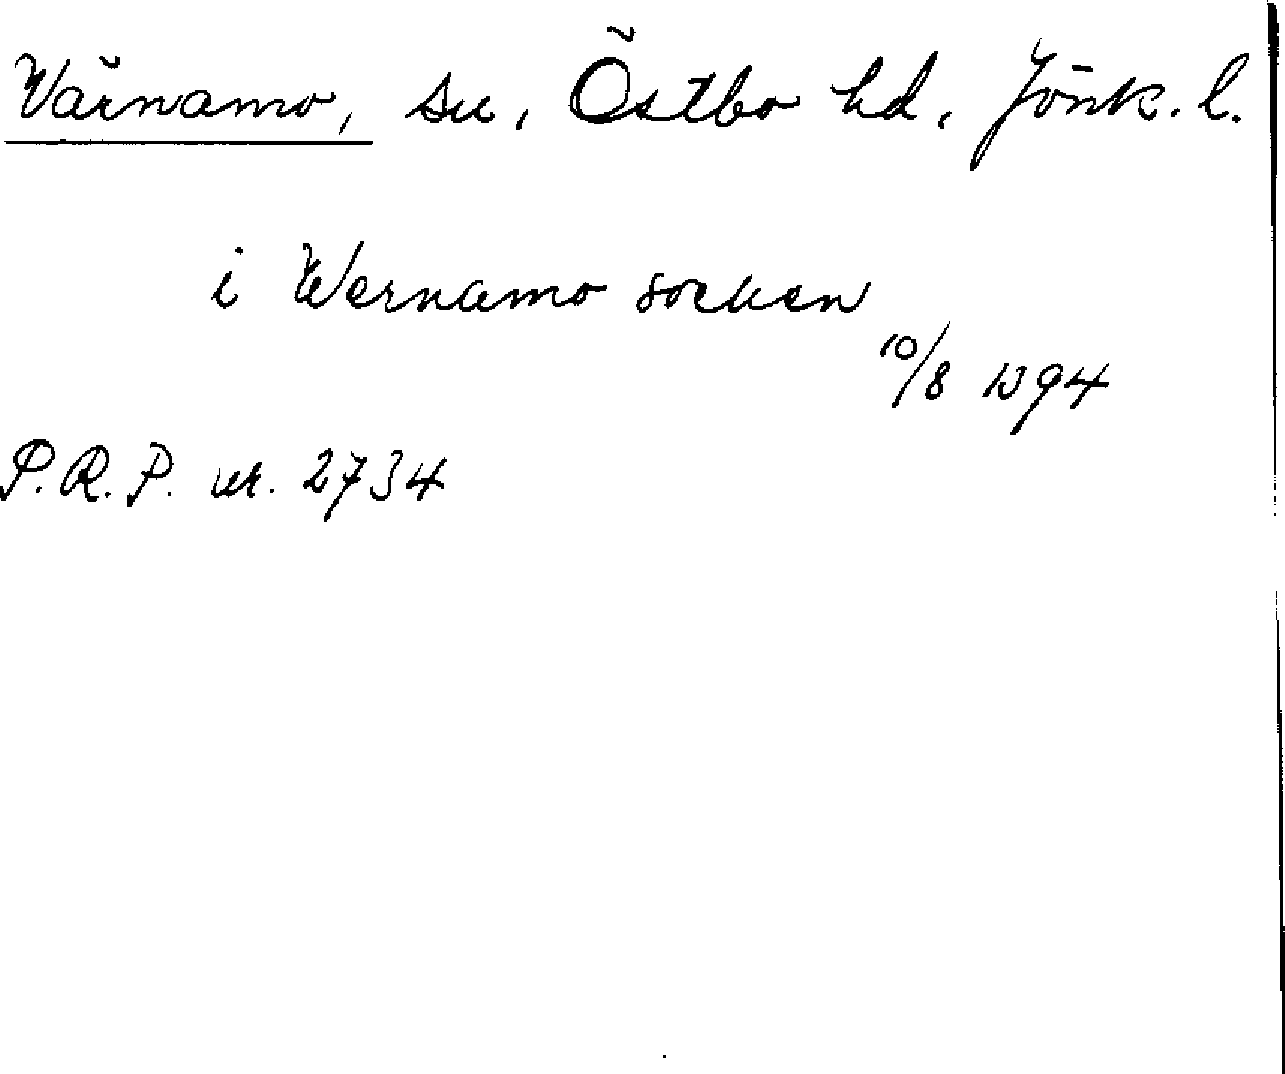 Värnamo, sn, Östbo hd. Jönk. l.
i Wernamo socken
10/8 1394
P.R.P. nr. 2734